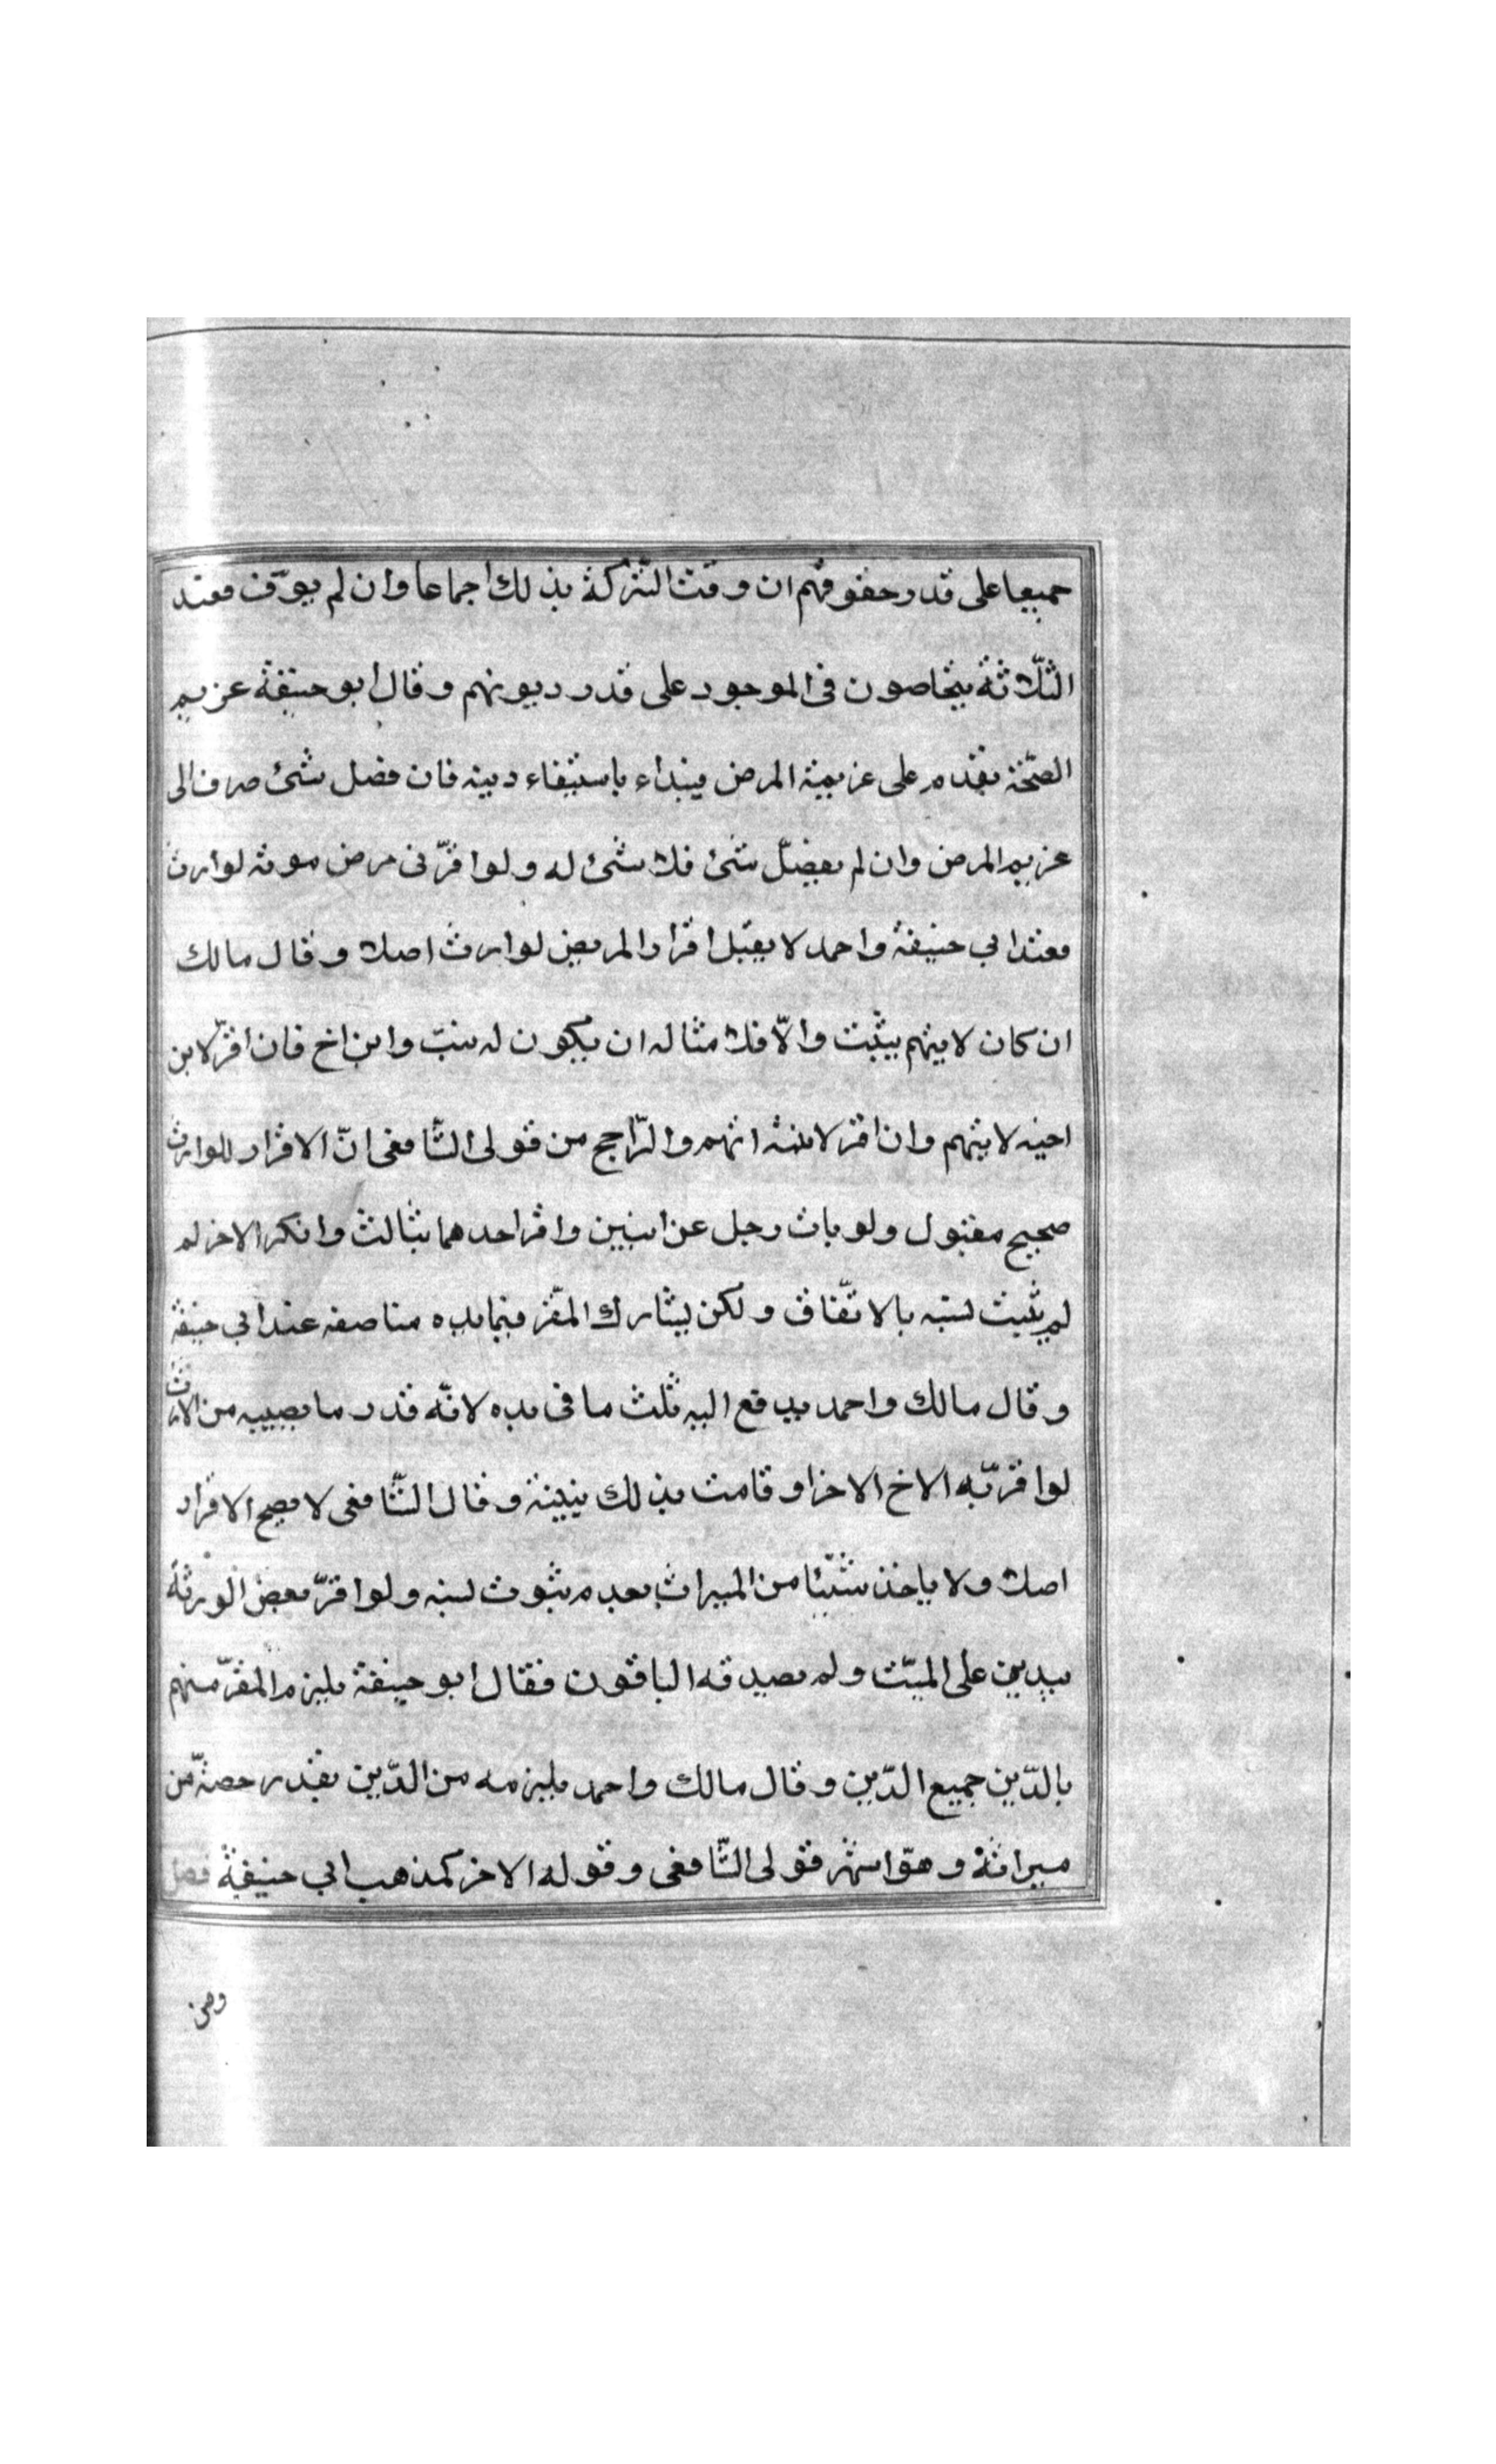 جميعا على قدر حقوقهم ان وفت التركة بذلك اجماعا وان لم يوف فعند
الثلاثة يتخاصون فى الموجود على قدر ديونهم وقال ابو حنيفة غريم
الصحة يقدم على غريمة المرض فيبداء باستيفاء دينه فان فضل شئ صرف الى
غريم المرض وان لم يفضل شئ فلا شئ له ولو اقر فى مرض موته لوارث
فعند ابي حنيفة واحمد لا يقبل اقرار المريض لوارث اصلا وقال مالك
ان كان لا يتهم يثبت والّا فلا مثاله ان يكون له بنت وابن اخ فان اقرّ لابن
اخيه لا يتهم وان اقر لابنته اتهم والرّاجح من قولى الشّافعى انّ الاقرار للوارث
صحيح مقبول ولو مات رجل عن ابنين واقر احدهما بثالث وانكر الاخر لم
لم يثبت نسبه بالاتّفاق ولكن يشارك المقّر فيما يده مناصفه عند ابي حنيفة
وقال مالك واحمد يدفع اليه ثلث ما فى يده لانّه قدر ما يصيبه من الارث
لو اقرّ به الاخ الاخر او قامت بذلك بينة وقال الشّافعى لا يصح الاقرار
اصلا ولا ياخذ شيّئا من الميراث بعدم ثبوت نسبه ولو اقرّ بعض الورثة
بدين على الميّت ولم يصدقه الباقون فقال ابو حنيفة يلزم المقرّ منهم
بالدّين جميع الدّين وقال مالك واحمد يلزمه من الدّين بقدر حصتّه من
ميراثة وهوّ اشهر قولى الشّافعى وقوله الاخر كمذهب ابي حنيفة فصل
ومن